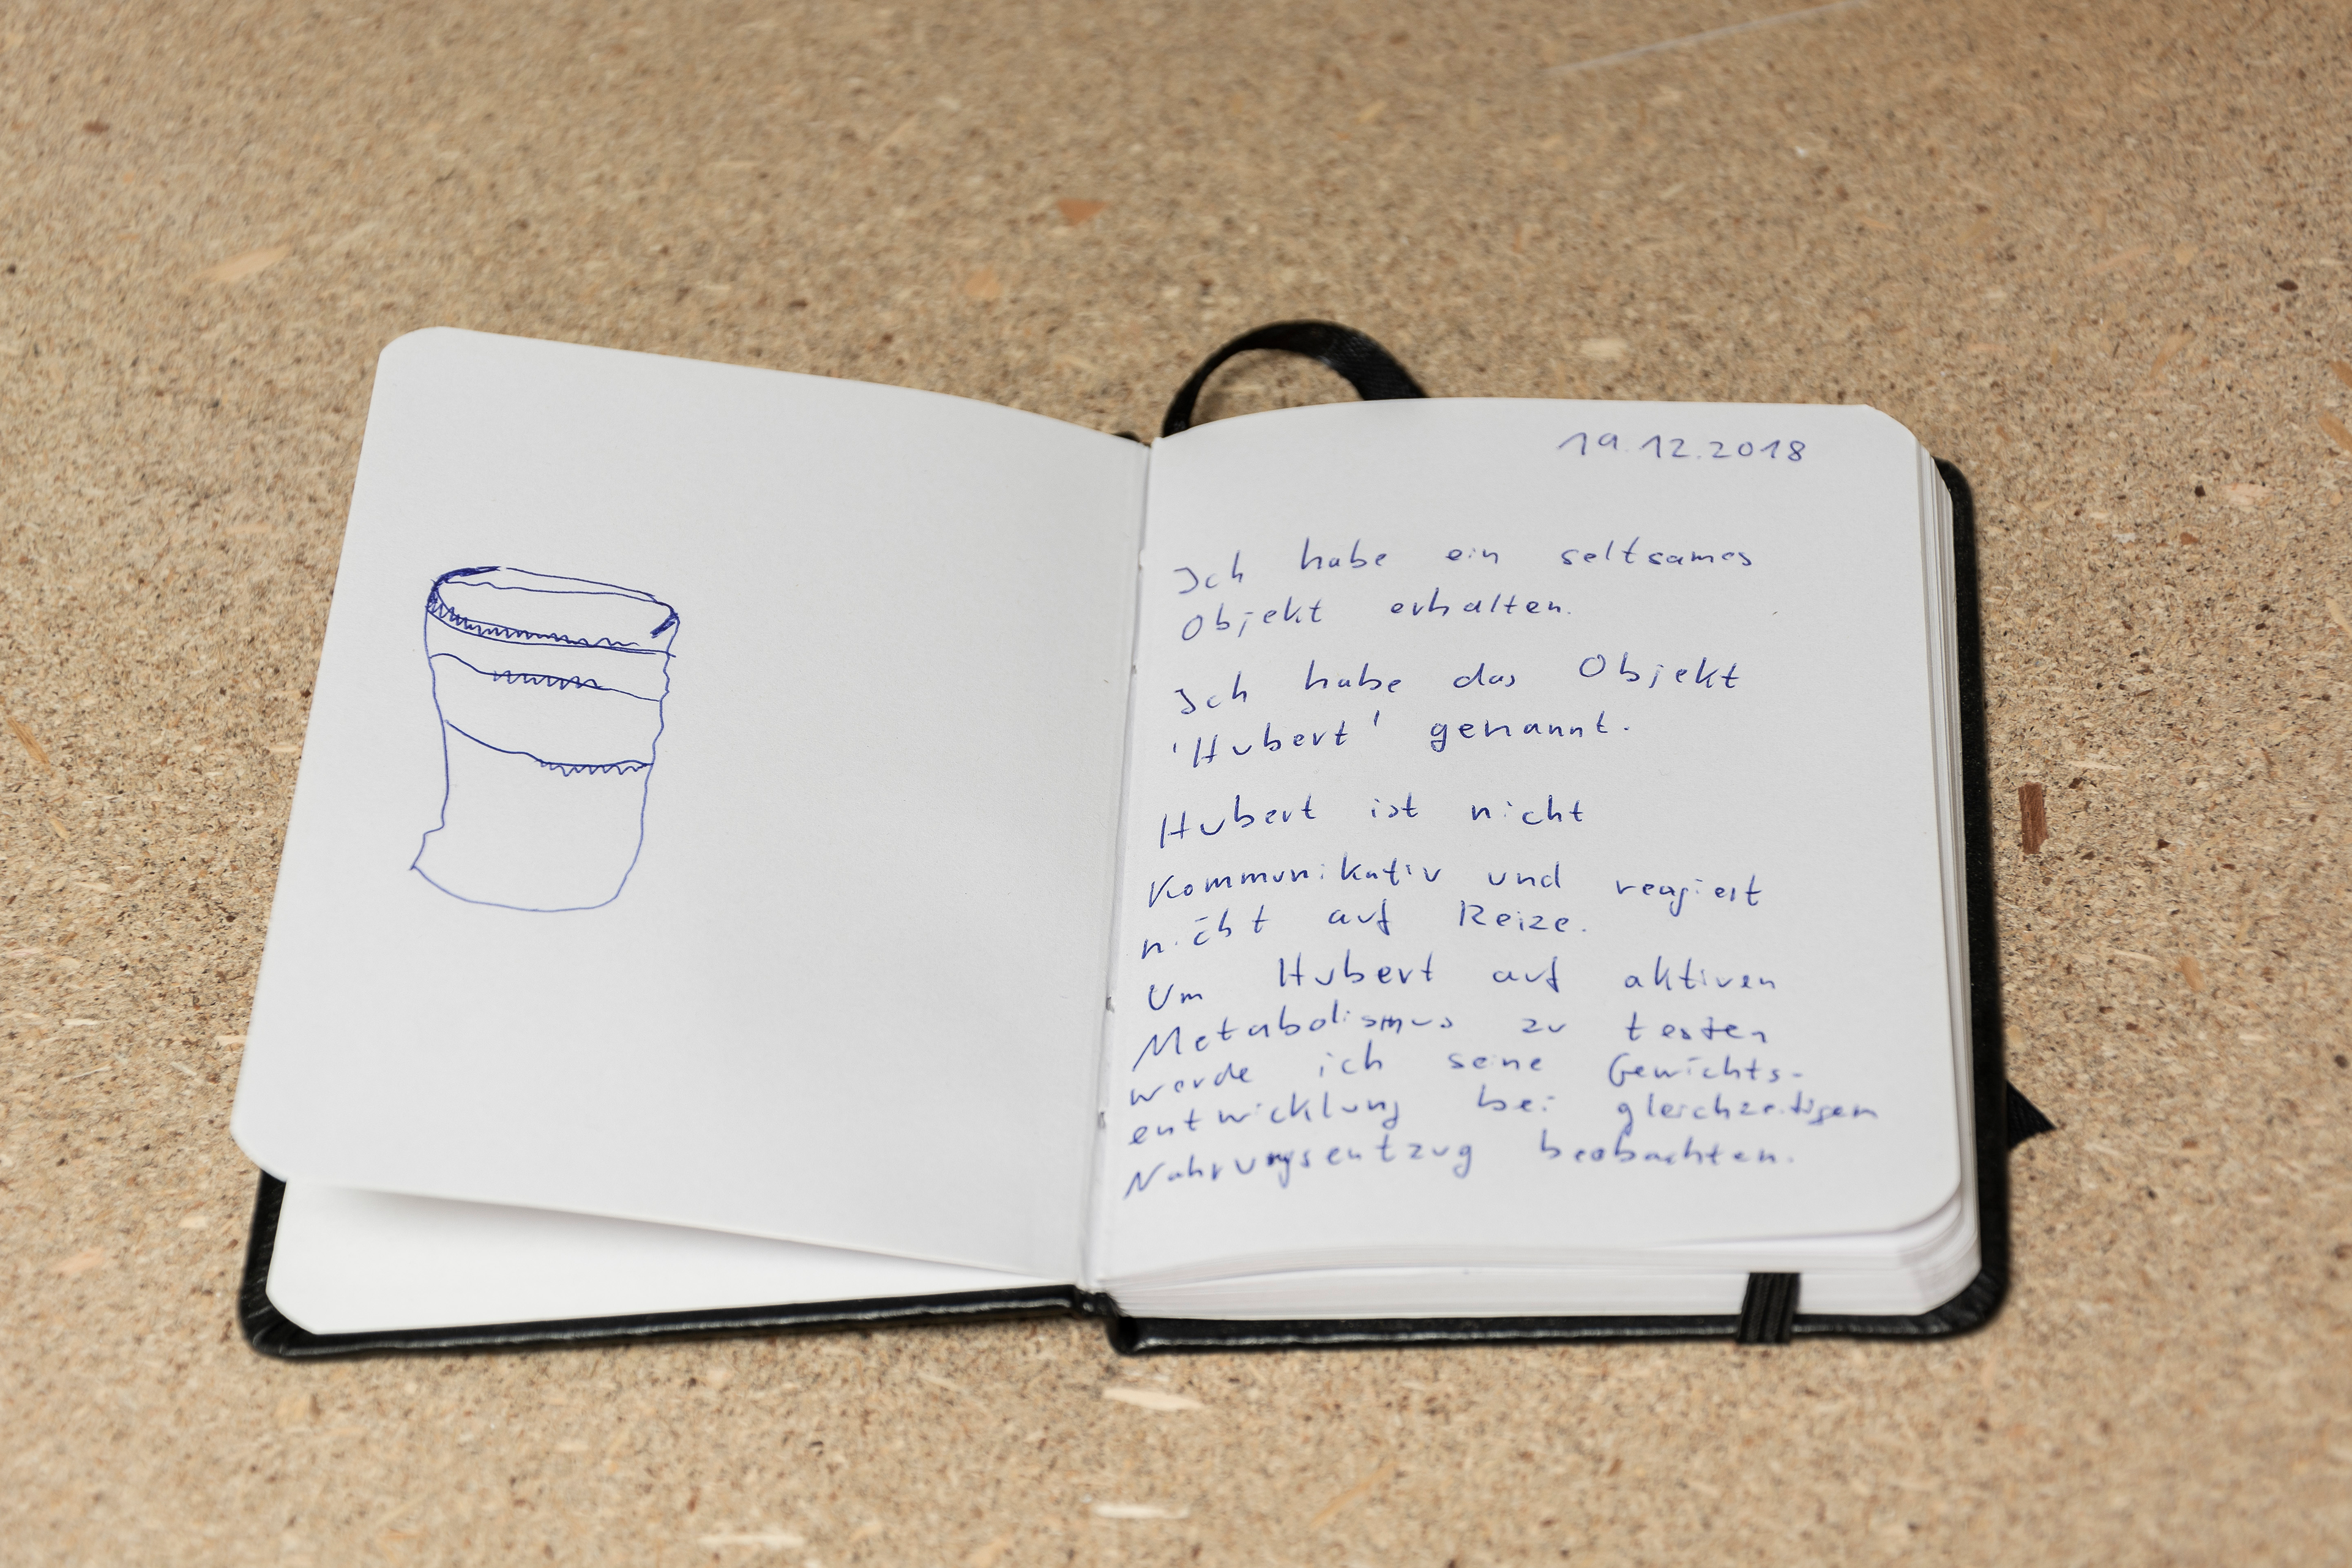 19.12.2018
Ich habe ein seltsames
Objekt erhalten.
Ich habe das Objekt
'Hubert' genannt.
Hubert ist nicht
kommunikativ und reagiert
nicht auf Reize.
Um Hubert auf aktiven
Metabolismus zu testen
werde ich seine Gewichts-
entwicklung bei gleichzeitigem
Nahrungsentzug beobachten.